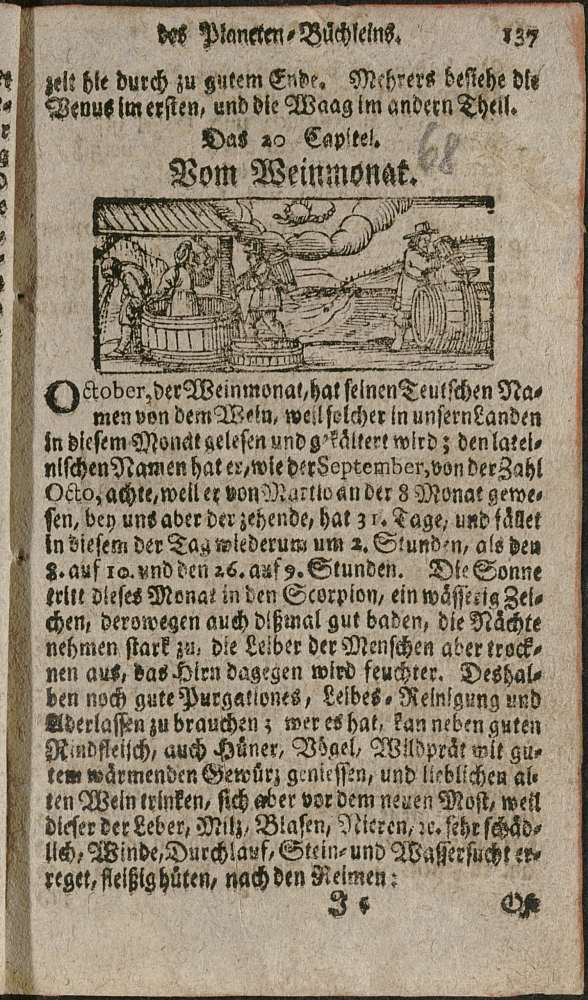 des Planeten-Büchleins. 137
zeit hie durch zu gutem Ende. Mehrers besiehe die
Venus im ersten, und die Waag im andern Theil.
Das 20 Capitel.
68
Vom Weinmonat.
October, der Weinmonat, hat seinen Teutschen Na-
men von dem Wein, weil solcher in unsern Landen
in diesem Monat gelesen und gekältert wird; den latei-
nischen Namen hat er, wie der September, von der Zahl
Octo, achte, weil er von Martio an der 8 Monat gewe-
sen, bey uns aber der zehende, hat 31. Tage, und fället
in diesem der Tag wiederum um 2. Stunden, als den
8. auf 10. und den 26. auf 9. Stunden. Die Sonne
tritt dieses Monat in den Scorpion, ein wässerig Zei-
chen, derowegen auch dißmal gut baden, die Nächte
nehmen stark zu, die Leiber der Menschen aber trock-
nen aus, das Hirn dagegen wird feuchter. Deshal-
ben noch gute Purgationes, Leibes-Reinigung und
Aderlassen zu brauchen; wer es hat, kan neben guten
Rindfleisch, auch Hüner, Vögel, Wildprät mit gu-
tem wärmenden Gewürz geniessen, und lieblichen al-
ten Wein trinken, sich aber vor dem neuen Most, weil
dieser der Leber, Milz, Blasen, Nieren, ꝛc. sehr schäd-
lich, Winde, Durchlauf, Stein- und Wassersucht er-
reget, fleißig hüten, nach den Reimen:
J